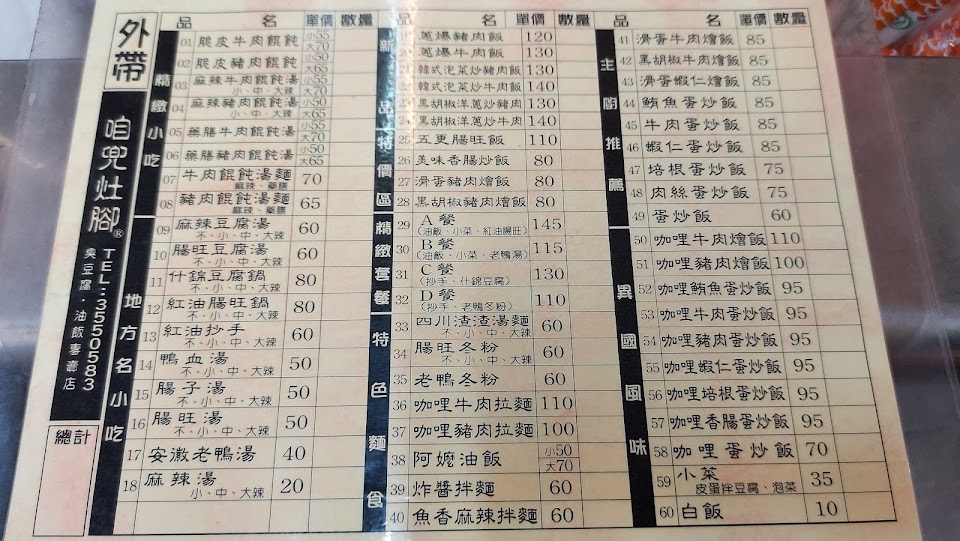 外帶
咱兜灶腳®
TEL:3550583
臭豆腐·油飯專賣店
總計
品名 單價 數量
精緻小吃
01 脆皮牛肉餛飩 小55 大70
02 脆皮豬肉餛飩 小50 大65
03 麻辣牛肉餛飩湯 小、中、大辣 小55 大70
04 麻辣豬肉餛飩湯 小、中、大辣 小50 大65
05 藥膳牛肉餛飩湯 小55 大70
06 藥膳豬肉餛飩湯 小50 大65
07 牛肉餛飩湯麵 麻辣、藥膳 70
08 豬肉餛飩湯麵 麻辣、藥膳 65
地方名小吃
09 麻辣豆腐湯 不、小、中、大辣 60
10 腸旺豆腐湯 不、小、中、大辣 60
11 什錦豆腐鍋 不、小、中、大辣 80
12 紅油腸旺鍋 不、小、中、大辣 80
13 紅油抄手 不、小、中、大辣 60
14 鴨血湯 不、小、中、大辣 50
15 腸子湯 不、小、中、大辣 50
16 腸旺湯 不、小、中、大辣 50
17 安徽老鴨湯 40
18 麻辣湯 小、中、大辣 20
品名 單價 數量
新品特價區
蔥爆豬肉飯 120
蔥爆牛肉飯 130
21 韓式泡菜炒豬肉飯 130
韓式泡菜炒牛肉飯 140
23 黑胡椒洋蔥炒豬肉 130
黑胡椒洋蔥炒牛肉 140
25 五更腸旺飯 110
26 美味香腸炒飯 80
27 滑蛋豬肉燴飯 80
28 黑胡椒豬肉燴飯 80
精緻套餐
29 A餐 (油飯、小菜、紅油腸旺) 145
30 B餐 (油飯、小菜、老鴨湯) 115
31 C餐 (抄手、什錦豆腐) 130
32 D餐 (抄手、老鴨冬粉) 110
特色麵食
33 四川渣渣湯麵 不、小、中、大辣 60
34 腸旺冬粉 不、小、中、大辣 60
35 老鴨冬粉 60
36 咖哩牛肉拉麵 110
37 咖哩豬肉拉麵 100
38 阿嬤油飯 小50 大70
39 炸醬拌麵 60
40 魚香麻辣拌麵 60
品名 單價 數量
主廚推薦
41 滑蛋牛肉燴飯 85
42 黑胡椒牛肉燴飯 85
43 滑蛋蝦仁燴飯 85
44 鮪魚蛋炒飯 85
45 牛肉蛋炒飯 85
46 蝦仁蛋炒飯 85
47 培根蛋炒飯 75
48 肉絲蛋炒飯 75
49 蛋炒飯 60
異國風味
50 咖哩牛肉燴飯 110
51 咖哩豬肉燴飯 100
52 咖哩鮪魚蛋炒飯 95
53 咖哩牛肉蛋炒飯 95
54 咖哩豬肉蛋炒飯 95
55 咖哩蝦仁蛋炒飯 95
56 咖哩培根蛋炒飯 95
57 咖哩香腸蛋炒飯 95
58 咖哩蛋炒飯 70
59 小菜 皮蛋拌豆腐、泡菜 35
60 白飯 10